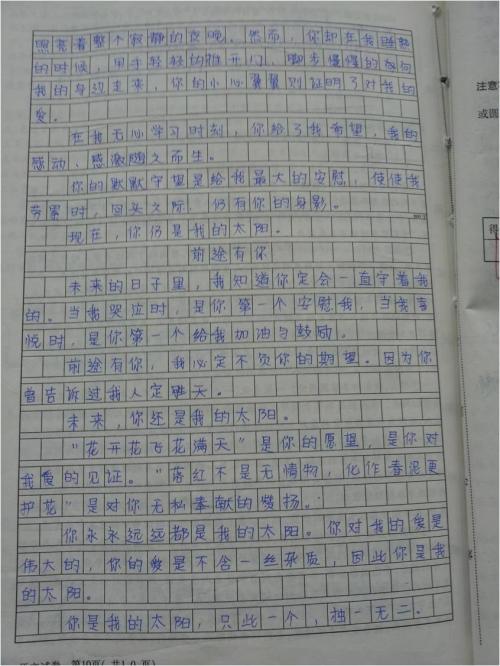 照亮着整个寂静的夜晚。然而，你却在我睡熟
的时候，用手轻轻的推开门，脚步慢慢的每向
我的身边走来，你的小心翼翼则证明了对我的
爱。
在我无心学习时刻，你给了我希望，我的
感动、感激随之而生。
你的默默守望是给我最大的安慰，使使我
劳累时，回头之际，仍有你的身影。
现在，你仍是我的太阳。
前途有你
未来的日子里，我知道你定会一直守着我
的。当我哭泣时，是你第一个安慰我，当我喜
悦时，是你第一个给我加油与鼓励。
前途有你，我必定不负你的期望。因为你
曾告诉过我人定胜天。
未来，你还是我的太阳。
“花开花飞花满天”是你的愿望，是你对
我爱的见证。“落红不是无情物，化作春泥更
护花”是对你无私奉献的赞扬。
你永永远远都是我的太阳。你对我的爱是
伟大的，你的爱是不含一丝杂质，因此你是我
的太阳。
你是我的太阳，只此一个，独一无二。
注意
或圆
得
第10页(共10页)